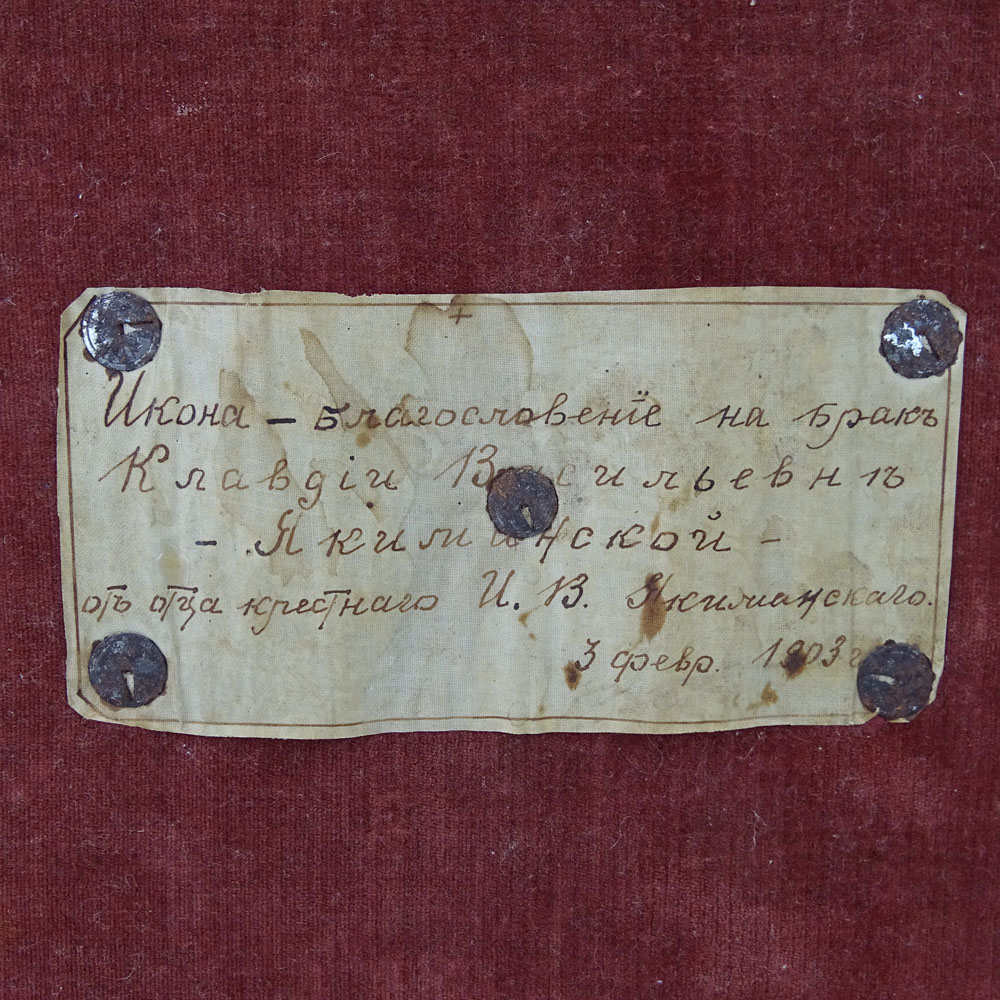 +
Икона – благословенïе на бракъ
Клавдiи Васильевнѣ
– Якиманской –
отъ отца крестнаго И. В. Якиманскаго.
3 февр. 1903 г